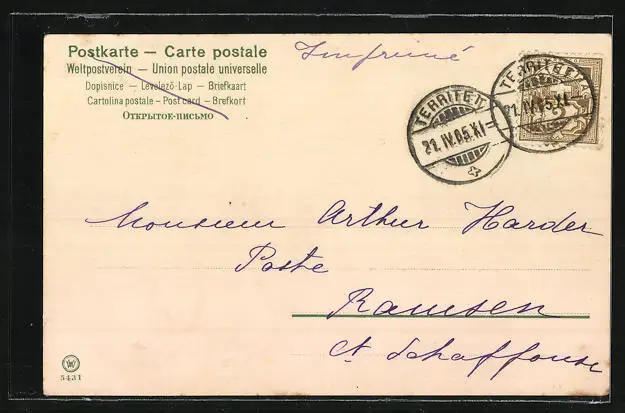 Postkarte — Carte postale
Weltpostverein — Union postale universelle
Dopisnice — Levelező-Lap — Briefkaart
Cartolina postale — Post card — Brefkort
Открытое-письмо
Imprimé
TERRITET
21.IV.05.XI
TERRITET
21.IV.05.XI
2
Monsieur Arthur Harder
Poste
Ramsen
Ct Schaffouse
5431